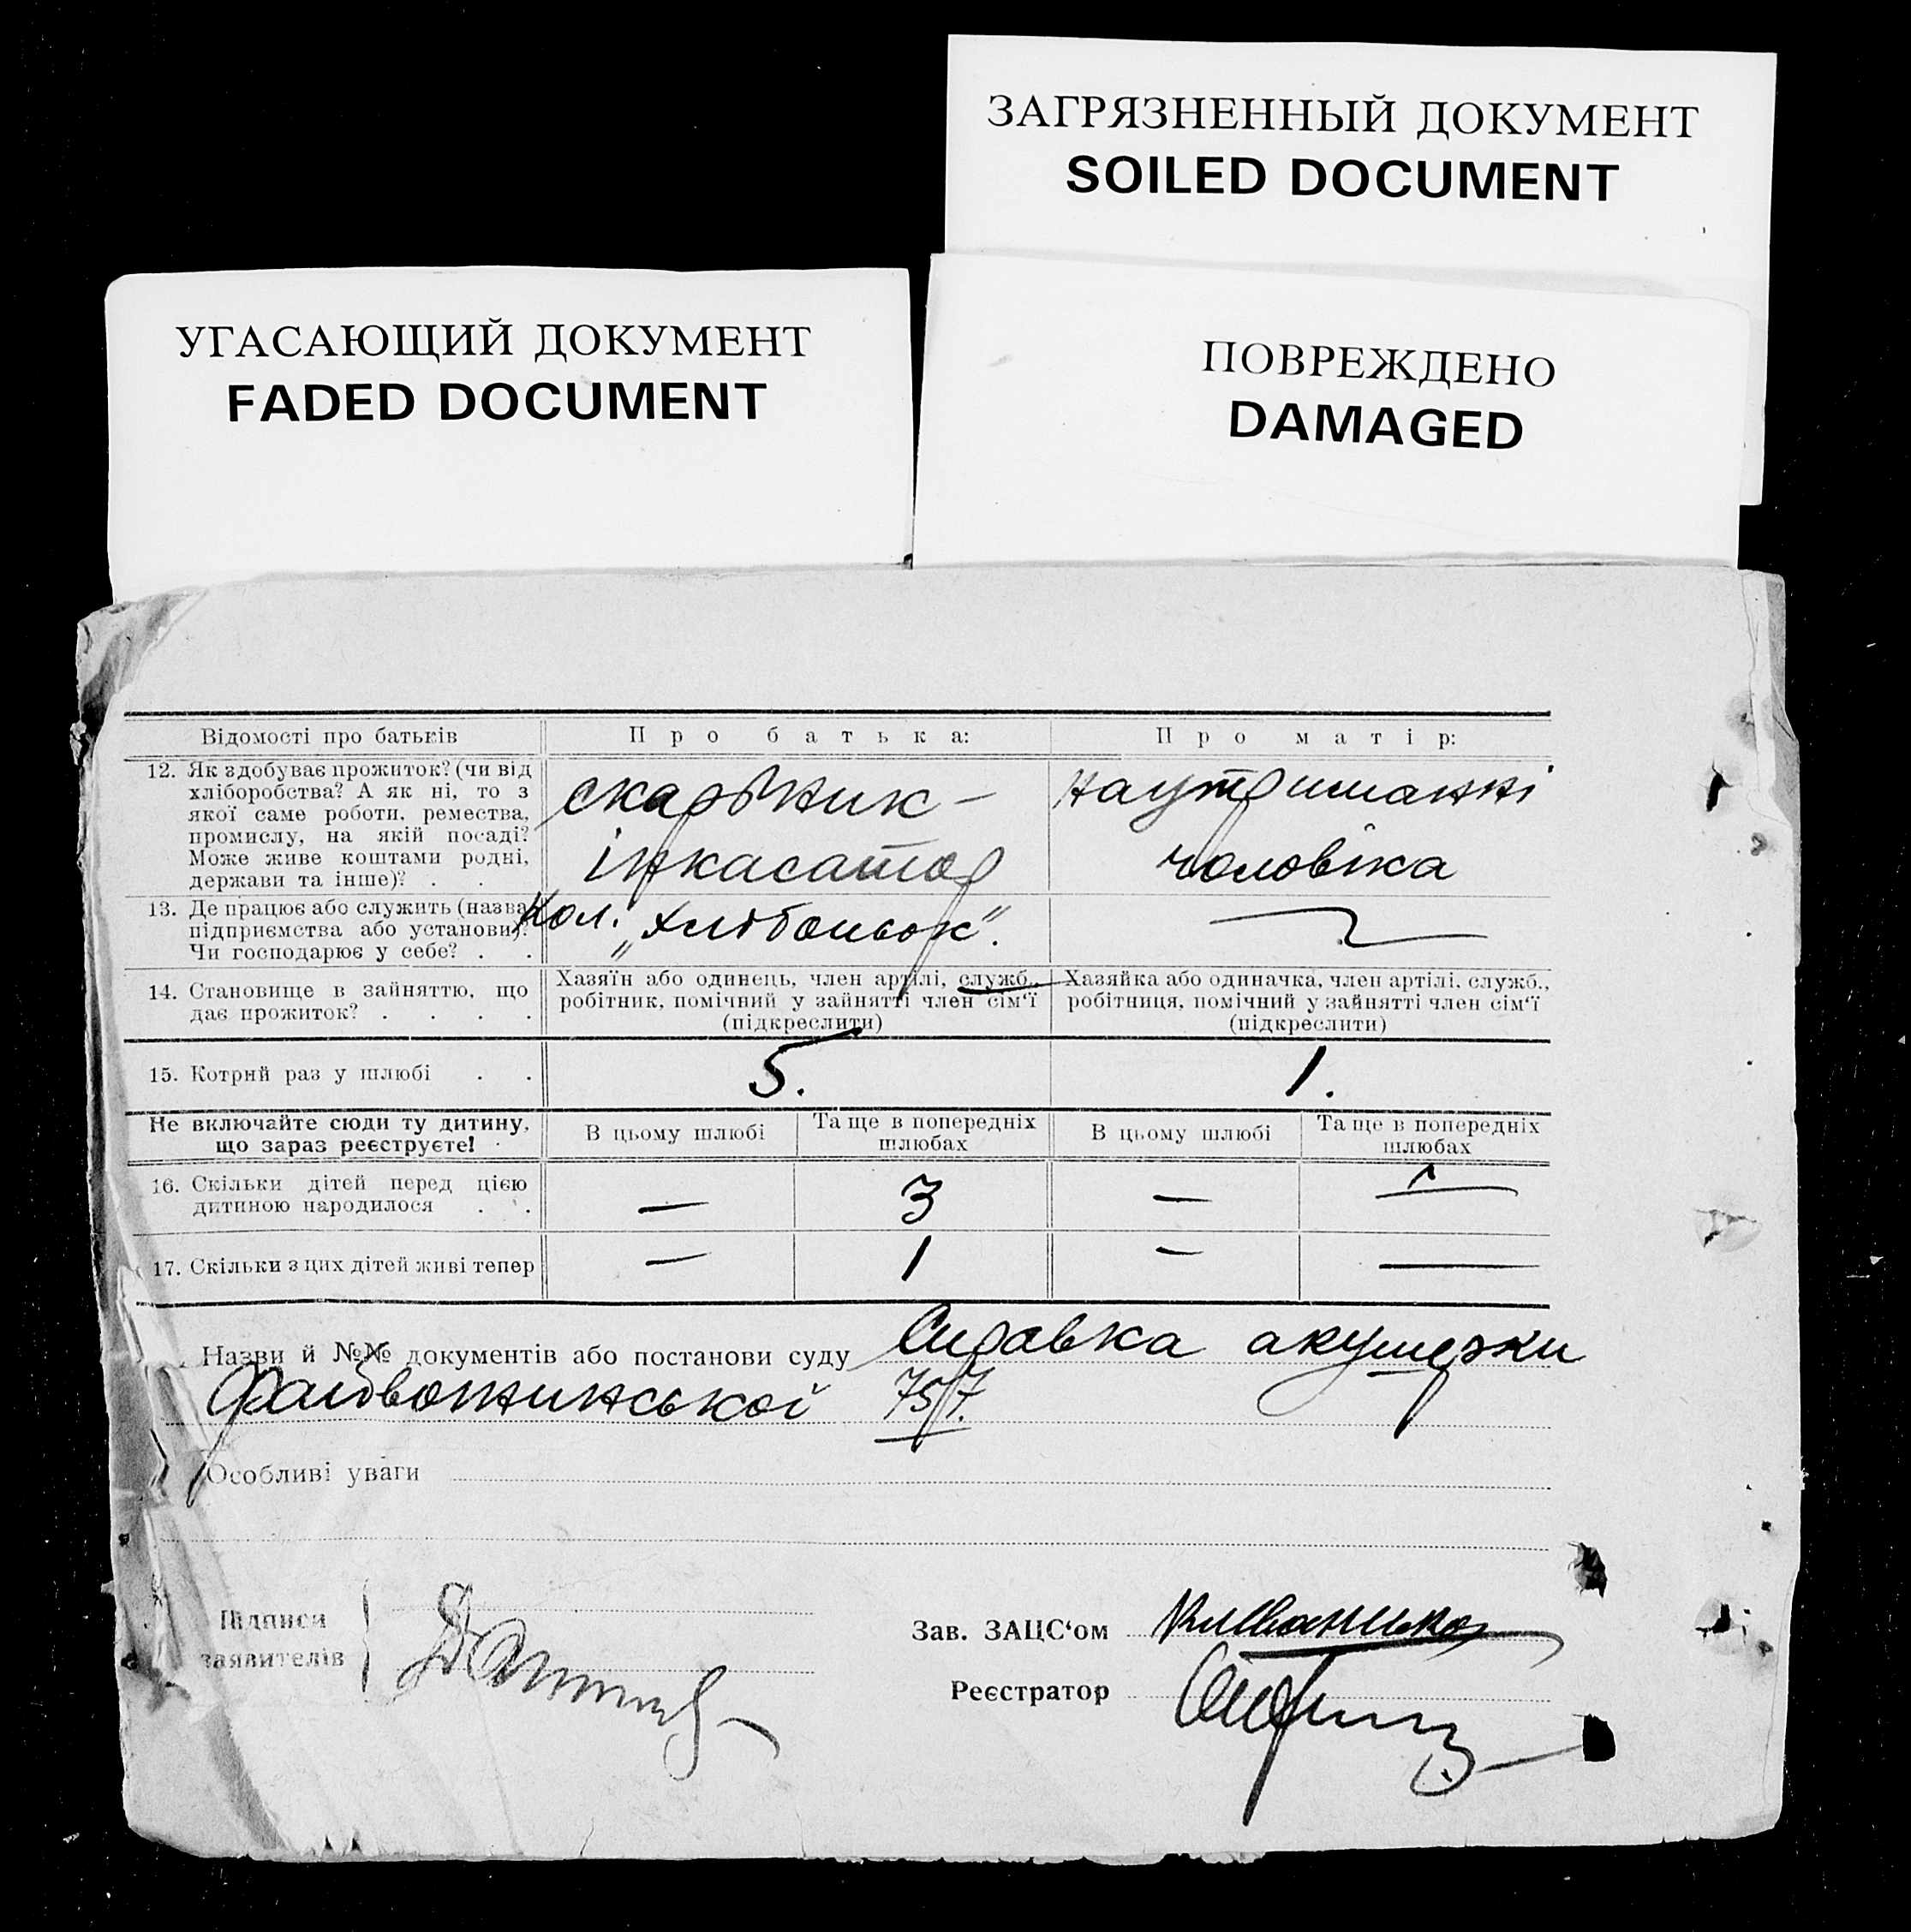 ЗАГРЯЗНЕННЫЙ ДОКУМЕНТ
SOILED DOCUMENT
УГАСАЮЩИЙ ДОКУМЕНТ
FADED DOCUMENT
ПОВРЕЖДЕНО
DAMAGED
Відомості про батьків
Про батька:
Про матір:
12. Як здобуває прожиток? (чи від
хліборобства? А як ні, то з
якої саме роботи, ремества,
промислу, на якій посаді?
Може живе коштами родні,
держави та інше)? . .
скарбник –
інкасатор
на утриманні
чоловіка
13. Де працює або служить (назва
підприємства або установи)?
Чи господарює у себе? . .
Кол. „Хлібоньок".
14. Становище в зайняттю, що
дає прожиток? . . . .
Хазяїн або одинець, член артілі, служб.,
робітник, помічний у зайнятті член сім'ї
(підкреслити)
Хазяйка або одиначка, член артілі, служб.,
робітниця, помічний у зайнятті член сім'ї
(підкреслити)
15. Котрий раз у шлюбі . .
5.
1.
Не включайте сюди ту дитину,
що зараз реєструєте!
В цьому шлюбі
Та ще в попередніх
шлюбах
В цьому шлюбі
Та ще в попередніх
шлюбах
16. Скільки дітей перед цією
дитиною народилося . .
—
3
—
—
17. Скільки з цих дітей живі тепер
—
1
—
—
Назви й №№ документів або постанови суду Справка акушерки
757.
Особливі уваги
Підписи
заявителів
Зав. ЗАЦС'ом
Реєстратор